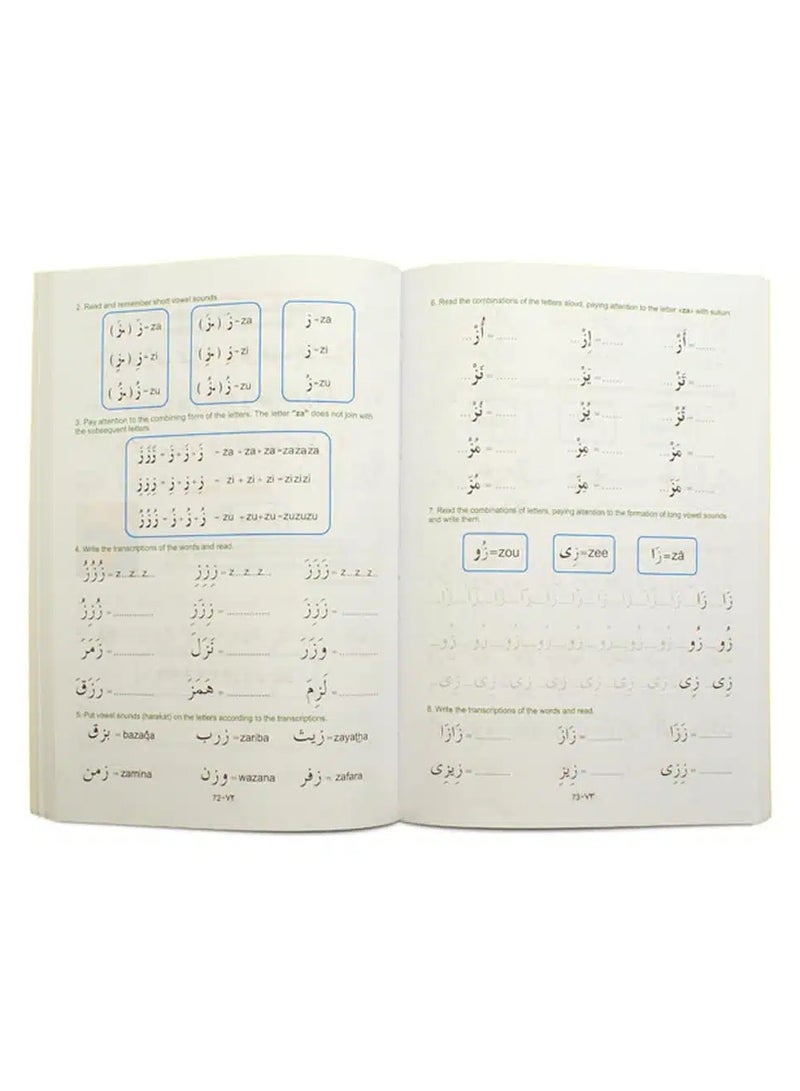 2. Read and remember short vowel sounds
زَ ( ـزَ ) = za زَ ( ـزَ ) = za زَ = za
زِ ( ـزِ ) = zi زِ ( ـزِ ) = zi زِ = zi
زُ ( ـزُ ) = zu زُ ( ـزُ ) = zu زُ = zu
3. Pay attention to the combining form of the letters. The letter "za" does not join with
the subsequent letters
زَزَزَ = زَ + زَ + زَ = za + za + za = zazaza
زِزِزِ = زِ + زِ + زِ = zi + zi + zi = zizizi
زُزُزُ = زُ + زُ + زُ = zu + zu + zu = zuzuzu
4. Write the transcriptions of the words and read.
زُزُزُ = z...z...z... زِزِزِ = z...z...z... زَزَزَ = z...z...z...
زُزِزُ = ............ زِزَزِ = ............ زَزِزَ = ............
زَمَرَ = ............ نَزَلَ = ............ وَزَرَ = ............
رَزَقَ = ............ هَمَزَ = ............ لَزِمَ = ............
5. Put vowel sounds (harakat) on the letters according to the transcriptions.
بزق = bazaqa زرب = zariba زيث = zayatha
زمن = zamina وزن = wazana زفر = zafara
72-٧٢
6. Read the combinations of the letters aloud, paying attention to the letter «za» with sukun.
أُزْ = ...... إِزْ = ...... أَزْ = ......
7. Read the combinations of letters, paying attention to the formation of long vowel sounds
and write them.
زُو=zou زِى=zee زَا=zâ
زَا زَا زَا زَا زَا زَا زَا زَا زَا زَا
زُو زُو زُو زُو زُو زُو زُو زُو زُو
زِى زِى زِى زِى زِى زِى زِى زِى
8. Write the transcriptions of the words and read.
زَازَا = ............ زَازَ = ............ زَزَا = ............
زِيزِى = ............ زِيزِ = ............ زِزِى = ............
73-٧٣